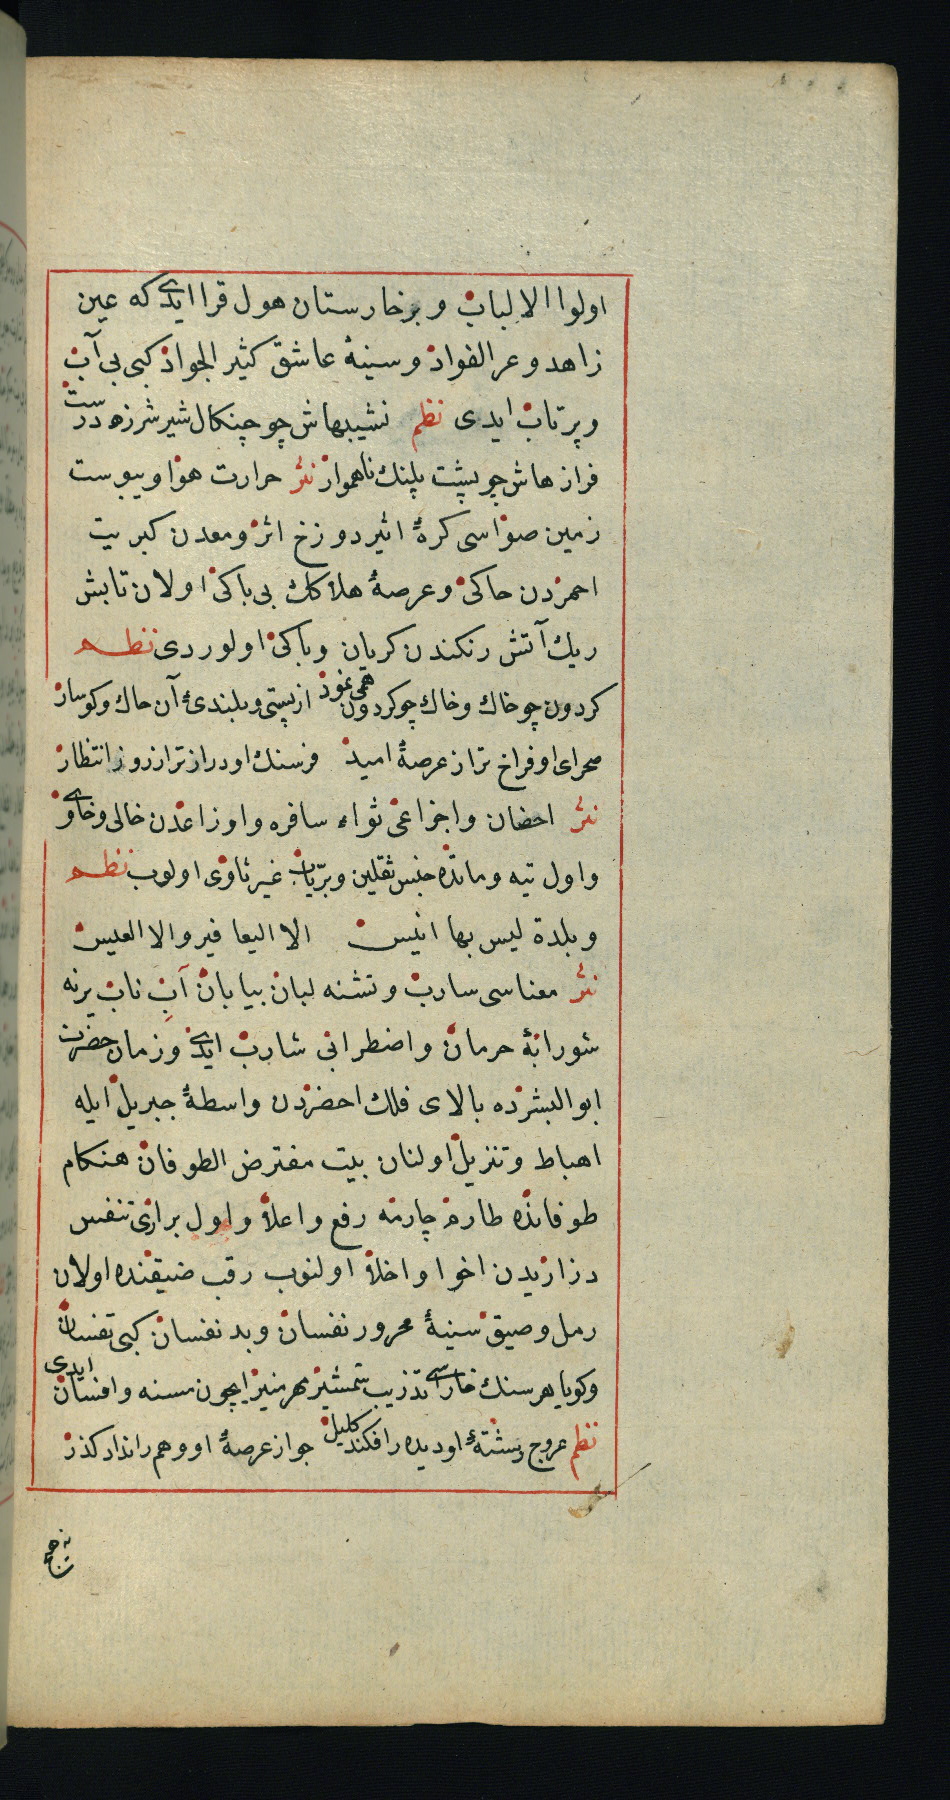 اولوا الالباب و برخارستان هول قرا ایدی که عین
زاهد و عر الفواد و سینهٔ عاشق کثیر الجواد کبی بی آب
و پرتاب ایدی نظم نشیبهاش چو چنکال شیر شرزه درست
فرازهاش چو پشت پلنك ناهموار نثر حرارت هوا و یبوست
زمین صواسی کرهٔ اثیر دوزخ اثر و معدن کبریت
احمردن حاکی و عرصهٔ هلاكلك بی باکی اولان تابش
ریك آتش رنکندن کریان و باکی اولوردی نظم
کردون چو خاك و خاك چو کردون همی نمود از پستی و بلندیٔ آن حاك و کوسار
صحرای او فراخ تر از عرصهٔ امید فرسنك او دراز تر از روز انتظار
نثر احضان و اجزاعی ثواء سافره و اوزاعدن خالی و خاوی
و اول تیه و مانده جنس ثقلین و بریات غیر ثاوی اولوب نظم
و بلدة لیس بها انیس الا الیعافیر و الا العیس
نثر معناسی سارب و تشنه لبان بیابان آبِ ناب یرنه
شورابهٔ حرمان و اضطرانی شارب ایدی و زمان حضرت
ابو البشرده بالای فلك احضردن واسطهٔ جبریل ایله
اهباط و تنزیل اولنان بیت مفترض الطوفان هنکام
طوفانده طارم چارمه رفع و اعلا و اول براری تنفس
دزاریدن اخوا و اخلا اولنوب رقب ضیقنده اولان
رمل و صیق سینهٔ محرور نفسان و بد نفسان کبی تفسان
و کویا هر سنك خارسی تذریب شمشیر مهر منیر ایچون مسنه و افسان ایدی
نظم عروج پشتهٔ او دیده را فکند کلیل جواز عرصهٔ او وهم را نداد کذر